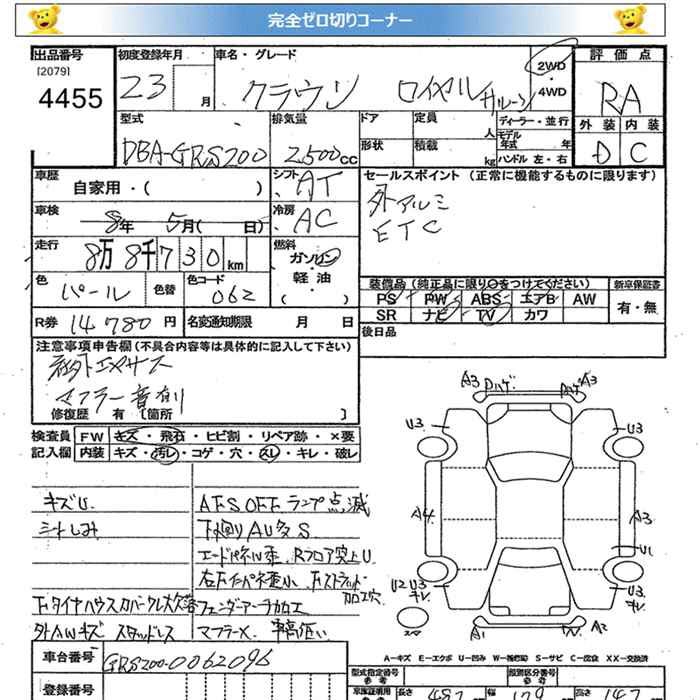 完全ゼロ切りコーナー
出品番号 初度登録年月 車名・グレード 2WD 評価点
[2079] 4455 23 月 クラウン ロイヤルサルーン ・4WD RA
型式 排気量 ドア 定員 人 ディーラー・並行 外装 内装
DBA-GRS200 2,500cc 形状 積載 kg モデル年式 年 D C
ハンドル 左・右
車歴 自家用・( ) シフト AT セールスポイント (正常に機能するものに限ります)
車検 8年 5月( 日) 冷房 AC 外アルミ
ETC
走行 8万8千730km 燃料 ガソリン・軽油・( )
色 パール 色替 色コード 062 装備品 (純正品に限り○をつけてください) 新車保証書
PS PW ABS エアB AW 有・無
R券 14780円 名変通知期限 月 日 SR ナビ TV カワ
後日品
注意事項申告欄 (不具合内容等は具体的に記入して下さい)
社外エアサス
マフラー音有り
修復歴 有 [箇所 ]
検査員 FW キズ・飛石・ヒビ割・リペア跡・×要
記入欄 内装 キズ・汚レ・コゲ・穴・スレ・キレ・破レ
キズU. AFS OFFランプ点滅
ミートしみ 下廻りAU多S
コードパネル歪、Rフロア突上U
右Fインパネ歪小、Fストラット加工穴
Fタイヤハウスカバークレ欠大 フェンダーアーチ加工
外AWキズ スタッドレス マフラーX. 車高低い
A3 Pハゲ Pハゲ A3
U3 U3
A4 A3
U1
U2 U3 キレ U3 キレ
スペア A1 A2
A-キズ E-エクボ U-凹み W-補修跡 S-サビ C-腐食 XX-交換済
車台番号 GRS200-0062096
登録番号 型式指定番号 類別区分番号
長さ 487 幅 179 147